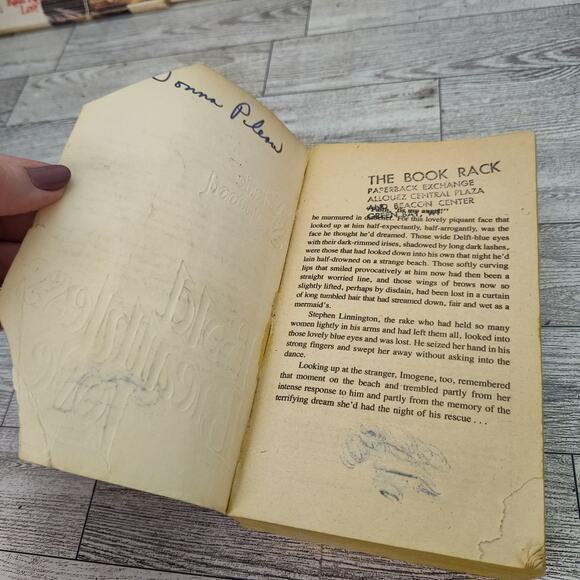 Donna
THE BOOK RACK
PAPERBACK EXCHANGE
ALLOUEZ CENTRAL PLAZA
AND BEACON CENTER
GREEN BAY,
he murmured in For this lovely piquant face that
looked up at him half-expectantly, half-arrogantly, was the
face he thought he'd dreamed. Those wide Delft-blue eyes
with their dark-rimmed irises, shadowed by long dark lashes,
were those that had looked down into his own that night he'd
lain half-drowned on a strange beach. Those softly curving
lips that smiled provocatively at him now had then been a
straight worried line, and those wings of brows now so
slightly lifted, perhaps by disdain, had been lost in a curtain
of long tumbled hair that had streamed down, fair and wet as a
mermaid's.
Stephen Linnington, the rake who had held so many
women lightly in his arms and had left them all, looked into
those lovely blue eyes and was lost. He seized her hand in his
strong fingers and swept her away without asking into the
dance.
Looking up at the stranger, Imogene, too, remembered
that moment on the beach and trembled partly from her
intense response to him and partly from the memory of the
terrifying dream she'd had the night of his rescue . . .